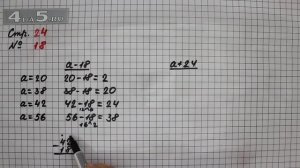 4 LA 5
Стр. 24
№ 18
a-18
a+24
a=20 20-18=2
a=38 38-18=20
a=42 42-18=24
a=56 56-18=38